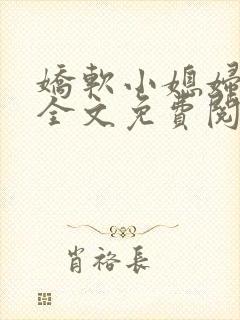 嬌軟小媳婦
全文免費閱
肖裕長